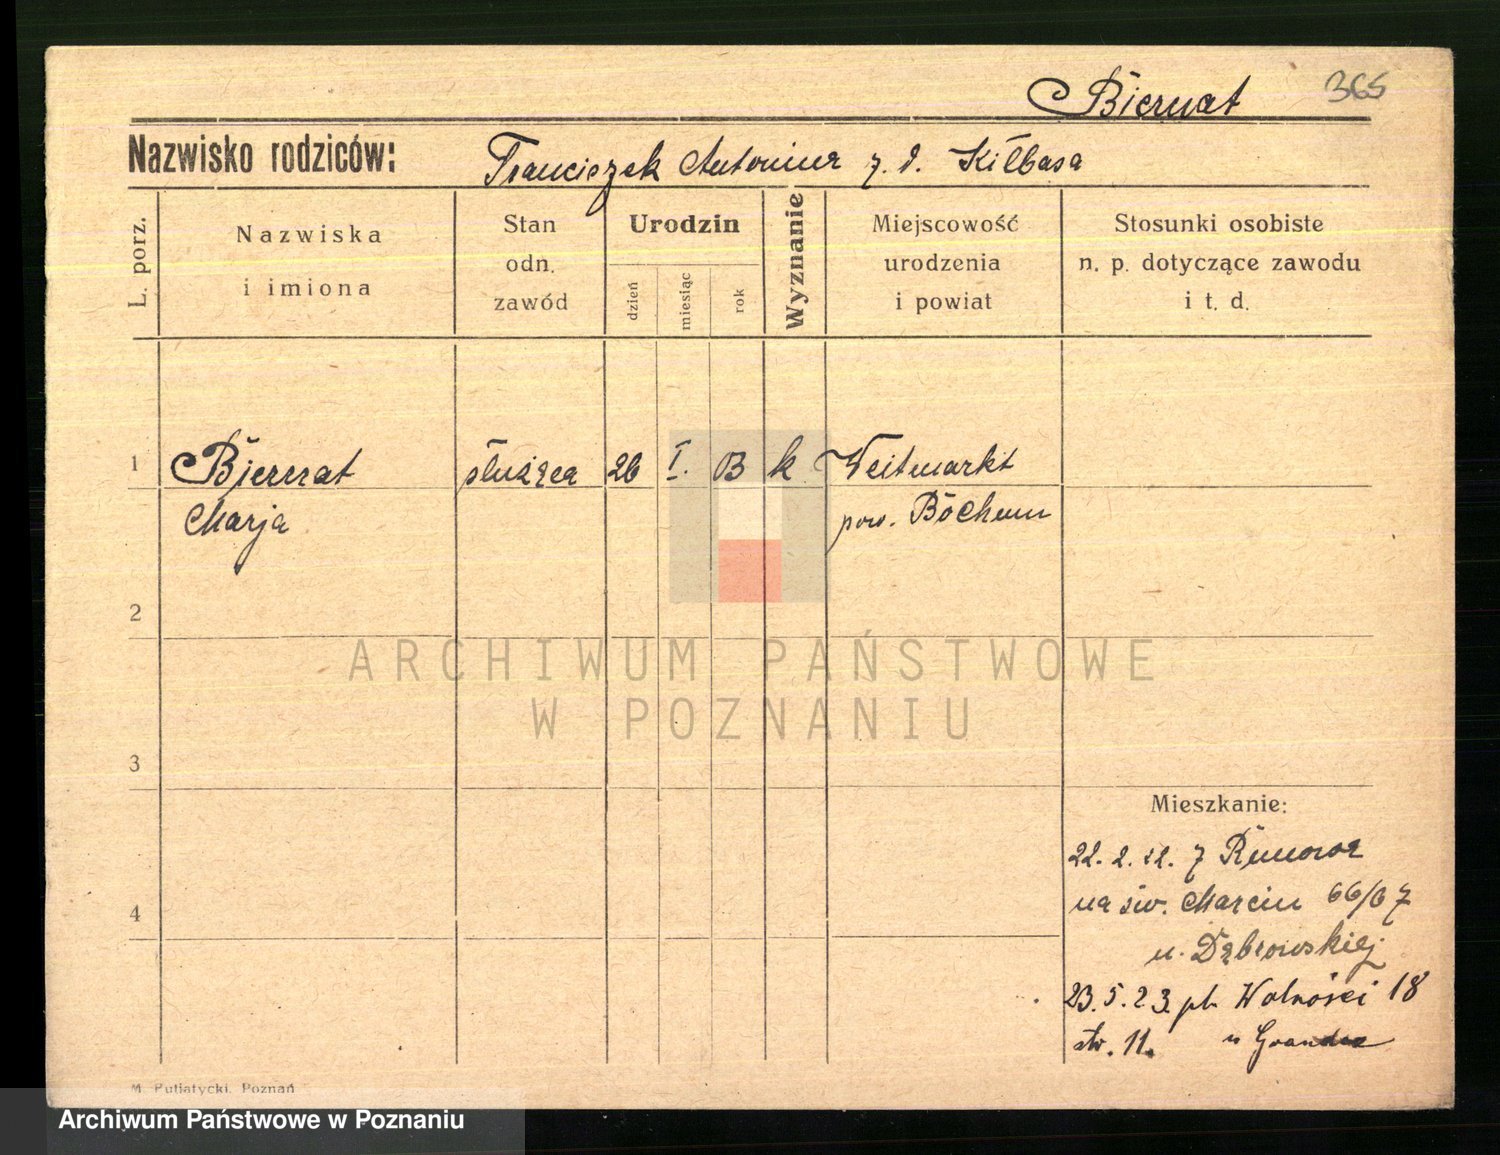 Biernat 365
Nazwisko rodziców: Franciszek Antonina z. d. Kiłbasa
L. porz.
Nazwiska
i imiona
Stan
odn.
zawód
Urodzin
dzień
miesiąc
rok
Wyznanie
Miejscowość
urodzenia
i powiat
Stosunki osobiste
n. p. dotyczące zawodu
i t. d.
1 Biernat służąca 26 I. 03 k Weitmarkt
Marja pow. Bochum
2
ARCHIWUM PAŃSTWOWE
W POZNANIU
3
Mieszkanie:
22. 2. 22. z
4
na św. Marcin 66/67
u. Dąbrowskiej
23. 5. 23. pl. Wolności 18
stw. 11. u
M. Putiatycki. Poznań
Archiwum Państwowe w Poznaniu